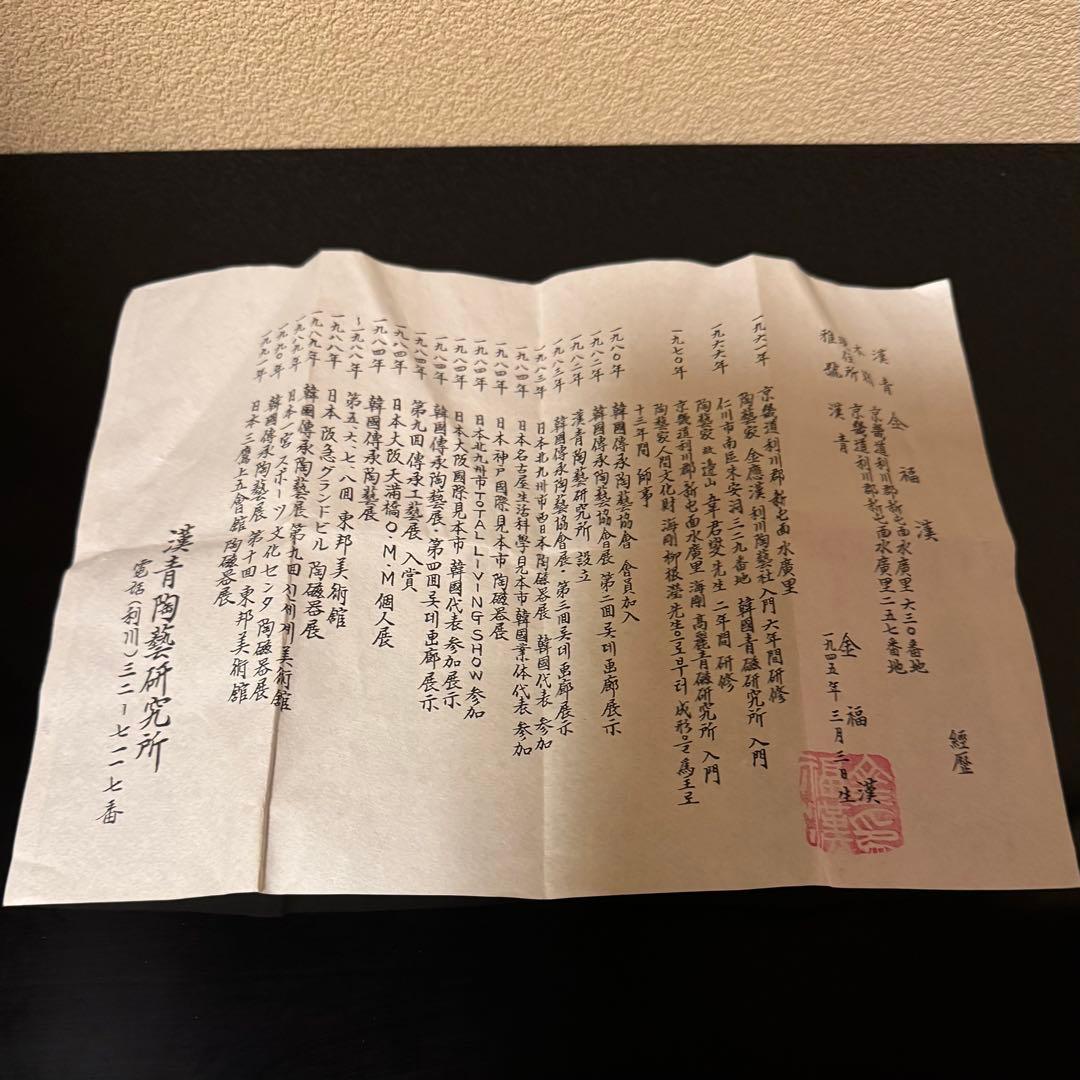 經歷
漢青 金福漢
金福漢
一九四五年 三月 三日生
本籍 京畿道利川郡新屯面水廣里六三○番地
住所 京畿道利川郡新屯面水廣里二五七番地
雅號 漢青
一九六一年 京畿道利川郡新屯面水廣里
陶藝家 金應漢 利川陶藝社入門 六年間研修
一九六六年 仁川市南區朱安洞三三九番地 韓國青磁研究所 入門
陶藝家 故 遠山 章君燮 先生 二年間 研修
一九七○年 京畿道利川郡新屯面水廣里 海剛 高麗青磁研究所 入門
陶藝家人間文化財 海剛 柳根瀅 先生으로부터 成形을 爲主로
十三年間 師事
一九八○年 韓國傳承陶藝協會 會員加入
一九八二年 韓國傳承陶藝協會展 第二回 롯데画廊展示
一九八二年 漢青陶藝研究所 設立
一九八三年 韓國傳承陶藝協會展・第三回롯데画廊展示
一九八三年 日本北九州市西日本陶磁器展 韓國代表 參加
一九八四年 日本名古屋生活科學見本市韓國業体代表 參加
一九八四年 日本神戸國際見本市 陶磁器展
一九八四年 日本北九州市TOTAL LIVING SHOW 參加
一九八四年 日本大阪國際見本市 韓國代表 參加展示
一九八四年 韓國傳承陶藝展・第四回롯데画廊展示
一九八四年 第九回 傳承工藝展 入賞
一九八四年 日本大阪天滿橋O・M・M個人展
一九八四年 韓國傳承陶藝展
~一九八八年 第五、六、七、八回 東邦美術館
一九八八年 日本 阪急グランドビル 陶磁器展
一九八九年 韓國傳承陶藝展 第九回 신세계美術館
一九八九年 日本一宮スポーツ文化センタ陶磁器展
一九九○年 韓國傳承陶藝展 第十回 東邦美術館
一九九一年 日本三鷹上五會館 陶磁器展
漢青陶藝研究所
電話(利川)三二-七一一七番